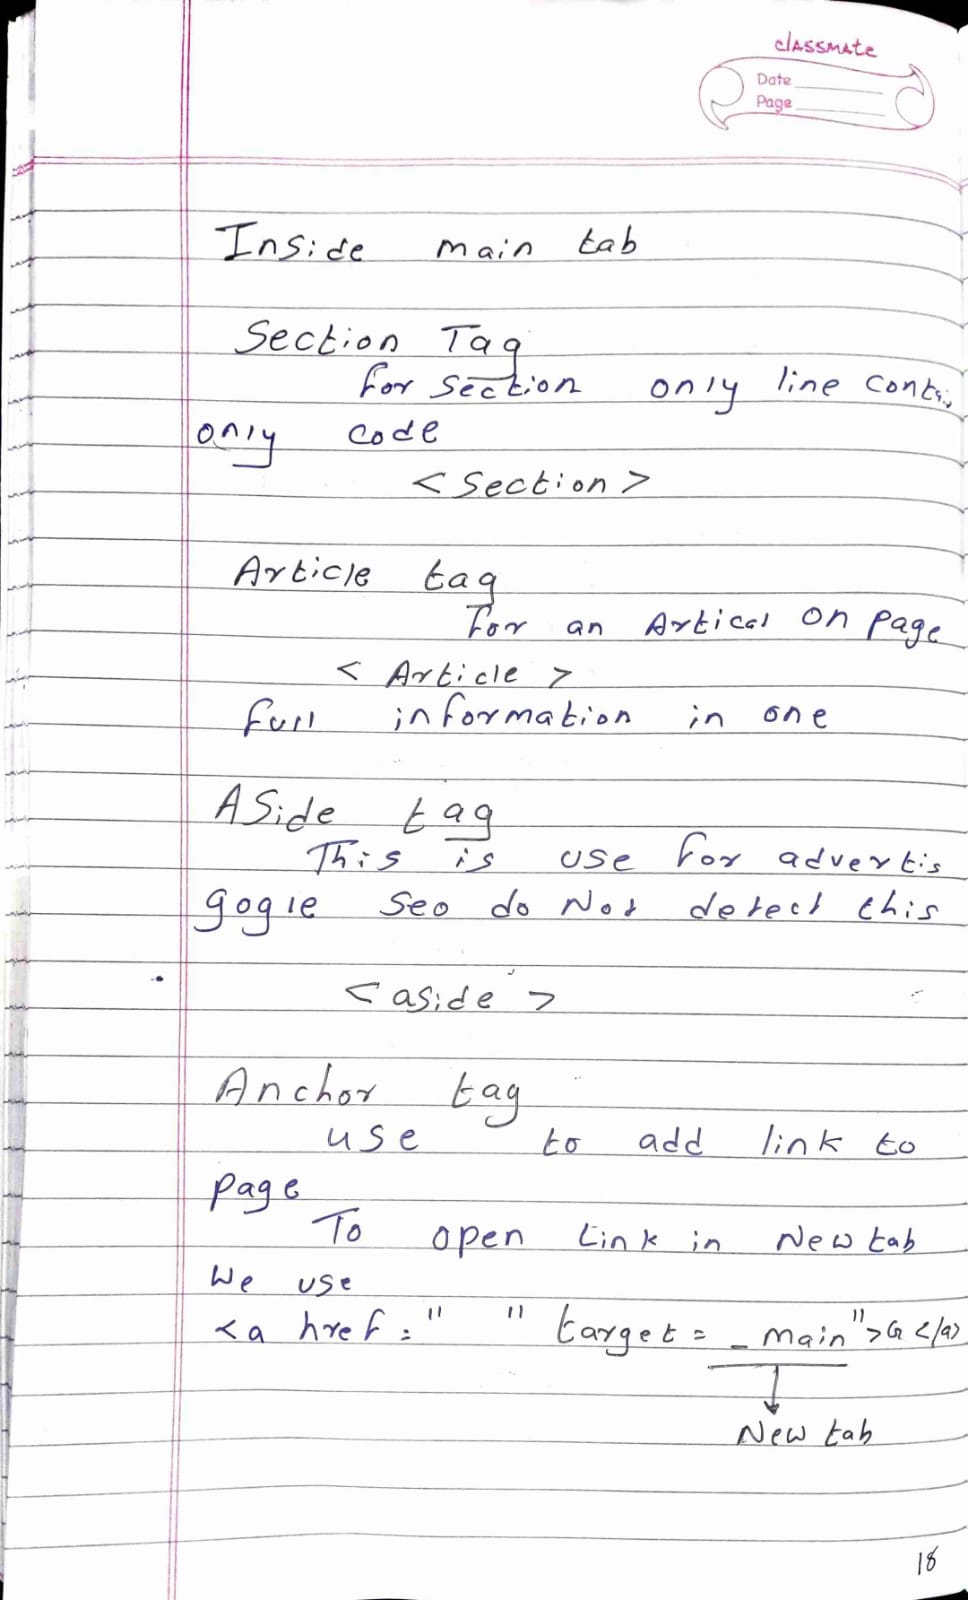 classmate
Date
Page
Inside main tab
Section Tag
For section only line
only code
<Section>
Article tag
For an Artical on page
<Article>
full information in one
ASide tag
This is use for advertis
gogle seo do Not detect this
<aside>
Anchor tag
use to add link to
page
To open Link in New tab
We use
<a href=" " target= _main"> </a>
New tab
18